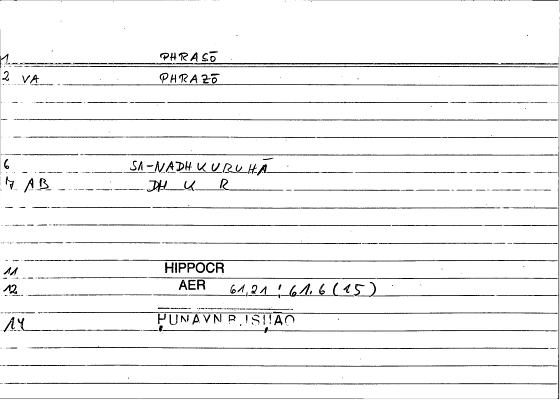 1 PHRASŌ
2 VA PHRAZŌ
6 SA-NADHUKURUHĀ
7 AB DH U R
11 HIPPOCR
12 AER 61,21 ; 61.6 (15)
14